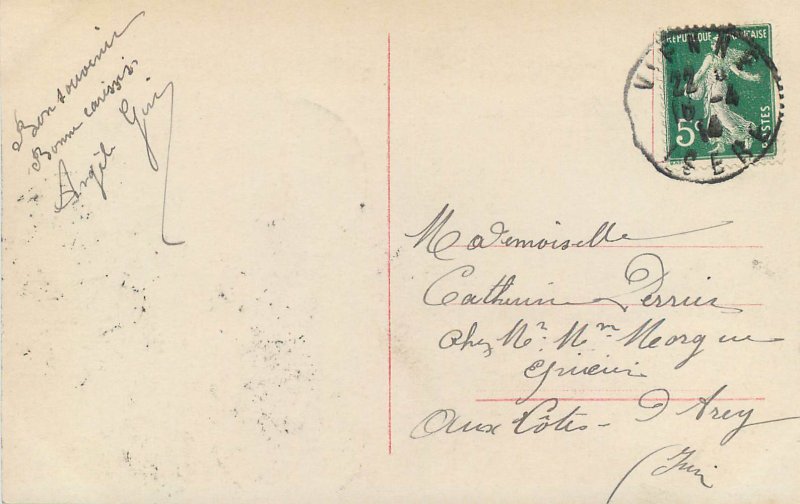 Bon souvenir
Bonne caresses
Angèle
REPUBLIQUE FRANÇAISE
5c
POSTES
VIENNE
22
-4
14
ISERE
Mademoiselle
Catherine Perrier
chez Mr. Mm Morgue
Epicier
aux Côtes-D'Arey